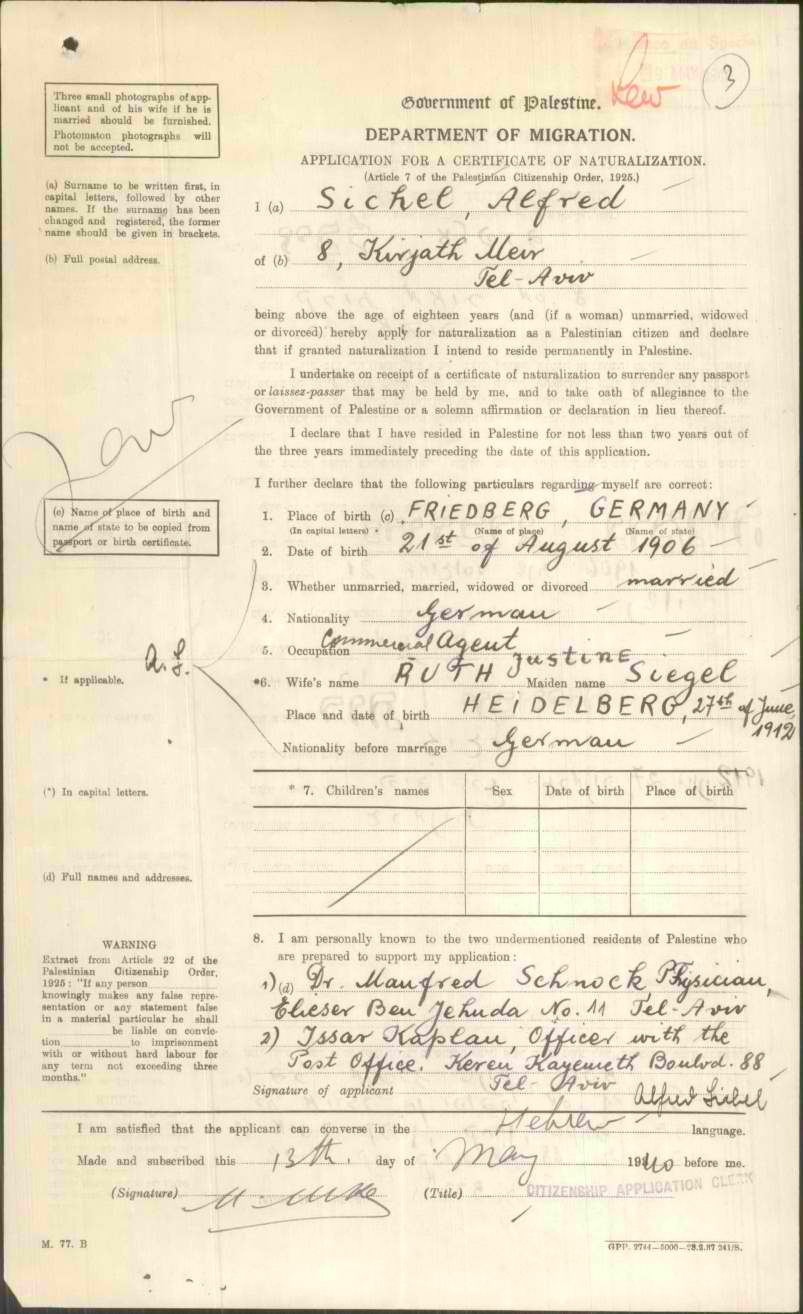 3
Three small photographs of app-
licant and of his wife if he is
married should be furnished.
Photomaton photographs will
not be accepted.
Government of Palestine.
DEPARTMENT OF MIGRATION.
APPLICATION FOR A CERTIFICATE OF NATURALIZATION.
(Article 7 of the Palestinian Citizenship Order, 1925.)
(a) Surname to be written first, in
capital letters, followed by other
names. If the surname has been
changed and registered, the former
name should be given in brackets.
I (a) Sichel, Alfred
(b) Full postal address.
of (b) 8, Kirjath Meir
Tel-Aviv
being above the age of eighteen years (and (if a woman) unmarried, widowed
or divorced) hereby apply for naturalization as a Palestinian citizen and declare
that if granted naturalization I intend to reside permanently in Palestine.
I undertake on receipt of a certificate of naturalization to surrender any passport
or laissez-passer that may be held by me, and to take oath of allegiance to the
Government of Palestine or a solemn affirmation or declaration in lieu thereof.
I declare that I have resided in Palestine for not less than two years out of
the three years immediately preceding the date of this application.
I further declare that the following particulars regarding myself are correct:
(c) Name of place of birth and
name of state to be copied from
passport or birth certificate.
1. Place of birth (c) FRIEDBERG, GERMANY
(In capital letters) (Name of place) (Name of state)
2. Date of birth 21st of August 1906
3. Whether unmarried, married, widowed or divorced married
4. Nationality German
5. Occupation Commercial Agent
* If applicable.
*6. Wife's name RUTH JUSTINE Maiden name Siegel
Place and date of birth HEIDELBERG, 27th of June,
1912
Nationality before marriage German
(*) In capital letters.
* 7. Children's names Sex Date of birth Place of birth
(d) Full names and addresses.
8. I am personally known to the two undermentioned residents of Palestine who
are prepared to support my application:
1) (d) Dr. Manfred Schnock Physician,
Elieser Ben Jehuda No. 11 Tel-Aviv
2) Issar Kaplan, Officer with the
Post Office. Keren Kayemeth Boulvd. 88
Tel-Aviv
WARNING
Extract from Article 22 of the
Palestinian Citizenship Order,
1925: "If any person
knowingly makes any false repre-
sentation or any statement false
in a material particular he shall
be liable on convic-
tion to imprisonment
with or without hard labour for
any term not exceeding three
months."
Signature of applicant Alfred Sichel
I am satisfied that the applicant can converse in the Hebrew language.
Made and subscribed this 13th day of May 1940 before me.
(Signature) (Title) CITIZENSHIP APPLICATION CLERK
M. 77. B
GPP. 2744—5000—23.2.37 241/S.